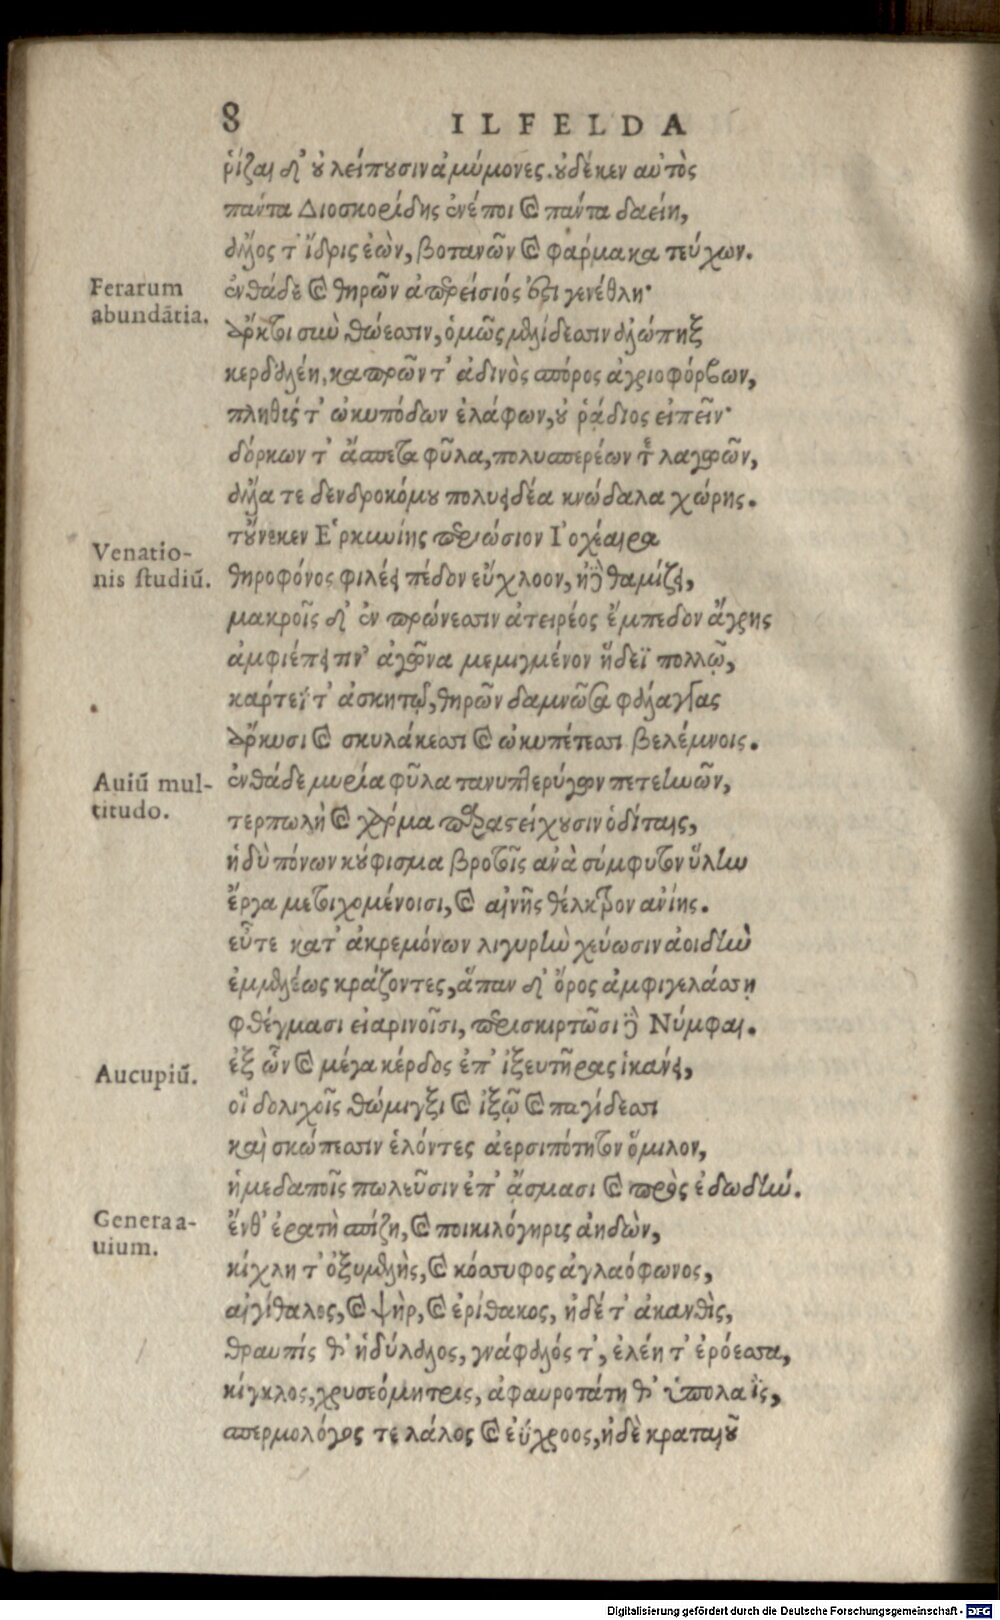 8 ILFELDA
ῥίζαι δ' οὐ λείπουσιν ἀμύμονες. οὐδέκεν αὐτὸς
πάντα Διοσκορίδης ἐνέποι καὶ πάντα δαείη,
δῖος τ' ἴδρις ἐὼν, βοτανῶν καὶ φάρμακα τεύχων.
Ferarum
abundãtia.
ἐνθάδε καὶ θηρῶν ἀπρείσιός ὅστι γενέθλη·
ἄρκτοι σὺν θώεσσιν, ὁμῶς μελίδεσσιν ἀλώπηξ
κερδαλέη, καπρῶν τ' ἀδινὸς σπόρος ἀγριοφόρβων,
πληθύς τ' ὠκυπόδων ἐλάφων, οὐ ῥάδιος εἰπεῖν·
δόρκων τ' ἄσπετα φῦλα, πολυσπερέων τὲ λαγωῶν,
ἄλλα τε δενδροκόμου πολυειδέα κνώδαλα χώρης.
τοὔνεκεν Ἑρκυνίης περιώσιον Ἰοχέαιρα
Venatio-
nis studiũ.
θηροφόνος φιλέει πέδον εὔχλοον, ἠδὲ θαμίζει,
μακροῖς δ' ἐν πρώνεσσιν ἀτειρέος ἔμπεδον ἄγρης
ἀμφιέπει τιν' ἀγῶνα μεμιγμένον ἥδεϊ πολλῷ,
κάρτεΐ τ' ἀσκητῷ, θηρῶν δαμνῶσα φάλαγγας
ἄρκυσι καὶ σκυλάκεσσι καὶ ὠκυπέτεσσι βελέμνοις.
Auiũ mul-
titudo.
ἐνθάδε μυρία φῦλα τανυπτερύγων πετεηνῶν,
τερπωλὴ καὶ χάρμα παραστείχουσιν ὁδίταις,
ἡδὺ πόνων κούφισμα βροτοῖς ἀνὰ σύμφυτον ὕλην
ἔργα μετοιχομένοισι, καὶ αἰνῆς θέλκτρον ἀνίης.
εὖτε κατ' ἀκρεμόνων λιγυρὴν χεύωσιν ἀοιδὴν
ἐμμελέως κράζοντες, ἅπαν δ' ὄρος ἀμφιγελάσσῃ
φθέγμασι εἰαρινοῖσι, περισκιρτῶσι δὲ Νύμφαι.
Aucupiũ.
ἐξ ὧν καὶ μέγα κέρδος ἐπ' ἰξευτῆρας ἱκάνει,
οἳ δολιχοῖς θώμιγξι καὶ ἰξῷ καὶ παγίδεσσι
καὶ σκώπεσσιν ἑλόντες ἀερσιπότητον ὅμιλον,
ἡμεδαποῖς πωλεῦσιν ἐπ' ᾄσμασι καὶ πρὸς ἐδωδήν.
Genera a-
uium.
ἔνθ' ἐρατὴ σπίζη, καὶ ποικιλόγηρις ἀηδὼν,
κίχλη τ' ὀξυμελὴς, καὶ κόσσυφος ἀγλαόφωνος,
αἰγίθαλος, καὶ ψὴρ, καὶ ἐρίθακος, ἠδέ τ' ἀκανθὶς,
θραυπίς θ' ἡδύλαλος, γνάφαλός τ', ἐλέη τ' ἐρόεσσα,
κίγκλος, χρυσεόμητρις, ἀφαυροτάτη θ' ὑπολαῒς,
σπερμολόγος τε λάλος καὶ ἐΰχροος, ἠδὲ κραταιοῦ
Digitalisierung gefördert durch die Deutsche Forschungsgemeinschaft - DFG